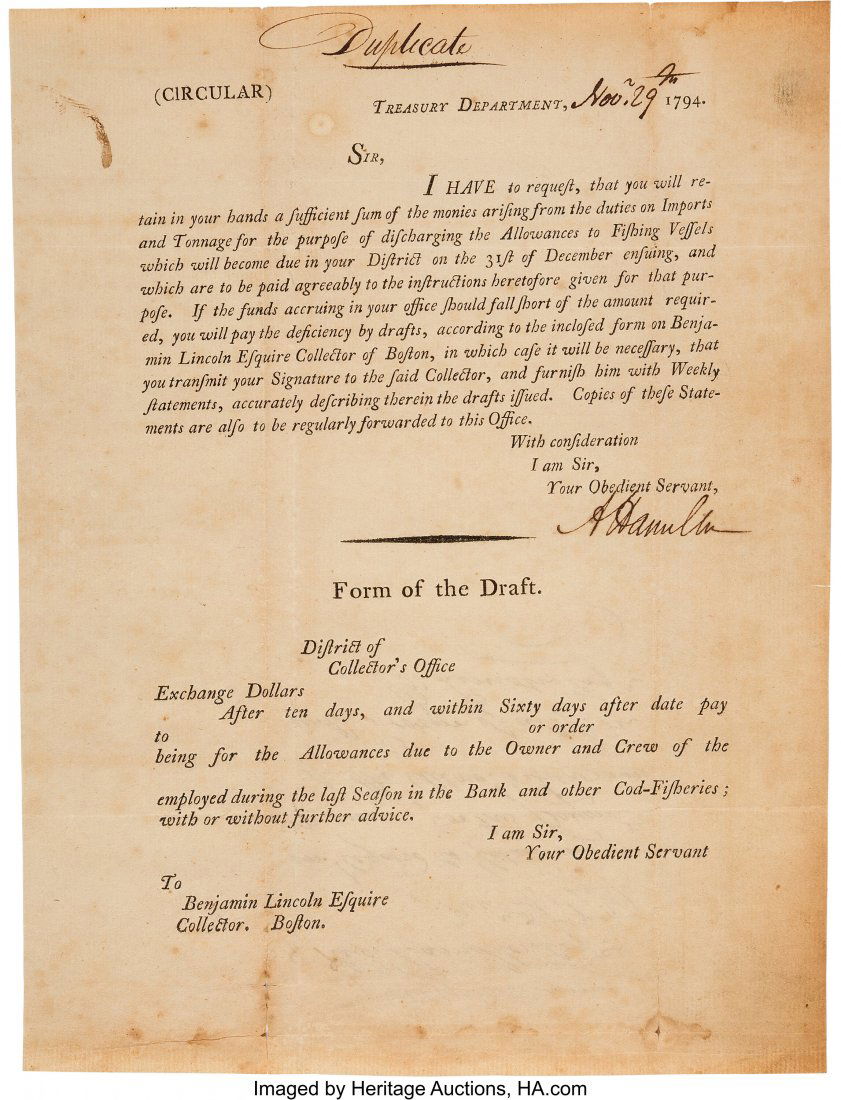 Duplicate
(CIRCULAR)
TREASURY DEPARTMENT, Novr. 29th 1794.
SIR,
I HAVE to requeſt, that you will re-
tain in your hands a ſufficient ſum of the monies ariſing from the duties on Imports
and Tonnage for the purpoſe of diſcharging the Allowances to Fiſhing Veſſels
which will become due in your Diſtrict on the 31ſt of December enſuing, and
which are to be paid agreeably to the inſtructions heretofore given for that pur-
poſe. If the funds accruing in your office ſhould fall ſhort of the amount requir-
ed, you will pay the deficiency by drafts, according to the incloſed form on Benja-
min Lincoln Eſquire Collector of Boſton, in which caſe it will be neceſſary, that
you tranſmit your Signature to the ſaid Collector, and furniſh him with Weekly
ſtatements, accurately deſcribing therein the drafts iſſued. Copies of theſe State-
ments are alſo to be regularly forwarded to this Office.
With conſideration
I am Sir,
Your Obedient Servant,
A Hamilton
Form of the Draft.
Diſtrict of
Collector's Office
Exchange Dollars
After ten days, and within Sixty days after date pay
to or order
being for the Allowances due to the Owner and Crew of the
employed during the laſt Seaſon in the Bank and other Cod-Fiſheries;
with or without further advice.
I am Sir,
Your Obedient Servant
To
Benjamin Lincoln Eſquire
Collector. Boſton.
Imaged by Heritage Auctions, HA.com